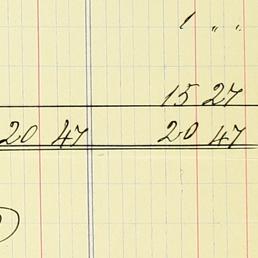 1 " "
15 27
20 47 20 47